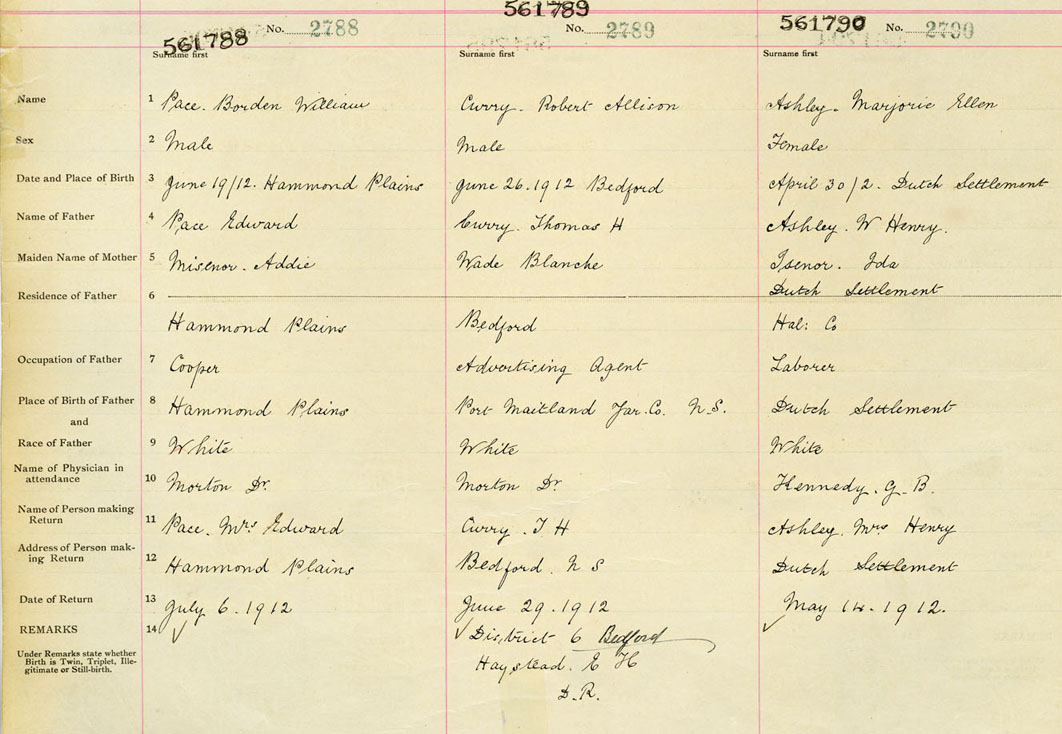 561788 No. 2788 561789 No. 2789 561790 No. 2790
Surname first Surname first Surname first
Name 1 Pace. Borden William Curry. Robert Allison Ashley. Marjorie Ellen
Sex 2 Male Male Female
Date and Place of Birth 3 June 19/12. Hammond Plains June 26.1912 Bedford April 30/2. Dutch Settlement
Name of Father 4 Pace Edward Curry. Thomas H Ashley. W Henry.
Maiden Name of Mother 5 Misenor. Addie Wade Blanche Isenor. Ida
Residence of Father 6 Dutch Settlement
Hammond Plains Bedford Hal: Co
Occupation of Father 7 Cooper Advertising Agent Laborer
Place of Birth of Father 8 Hammond Plains Port Maitland Yar. Co. N.S. Dutch Settlement
and
Race of Father 9 White White White
Name of Physician in
attendance 10 Morton Dr. Morton Dr. Kennedy. G. B.
Name of Person making
Return 11 Pace. Mrs Edward Curry. T H Ashley. Mrs Henry
Address of Person mak-
ing Return 12 Hammond Plains Bedford. N S Dutch Settlement
Date of Return 13 July 6.1912 June 29.1912 May 14.1912.
REMARKS 14 District 6 Bedford
Under Remarks state whether
Birth is Twin, Triplet, Ille-
gitimate or Still-birth.
Haystead. E H
D.R.